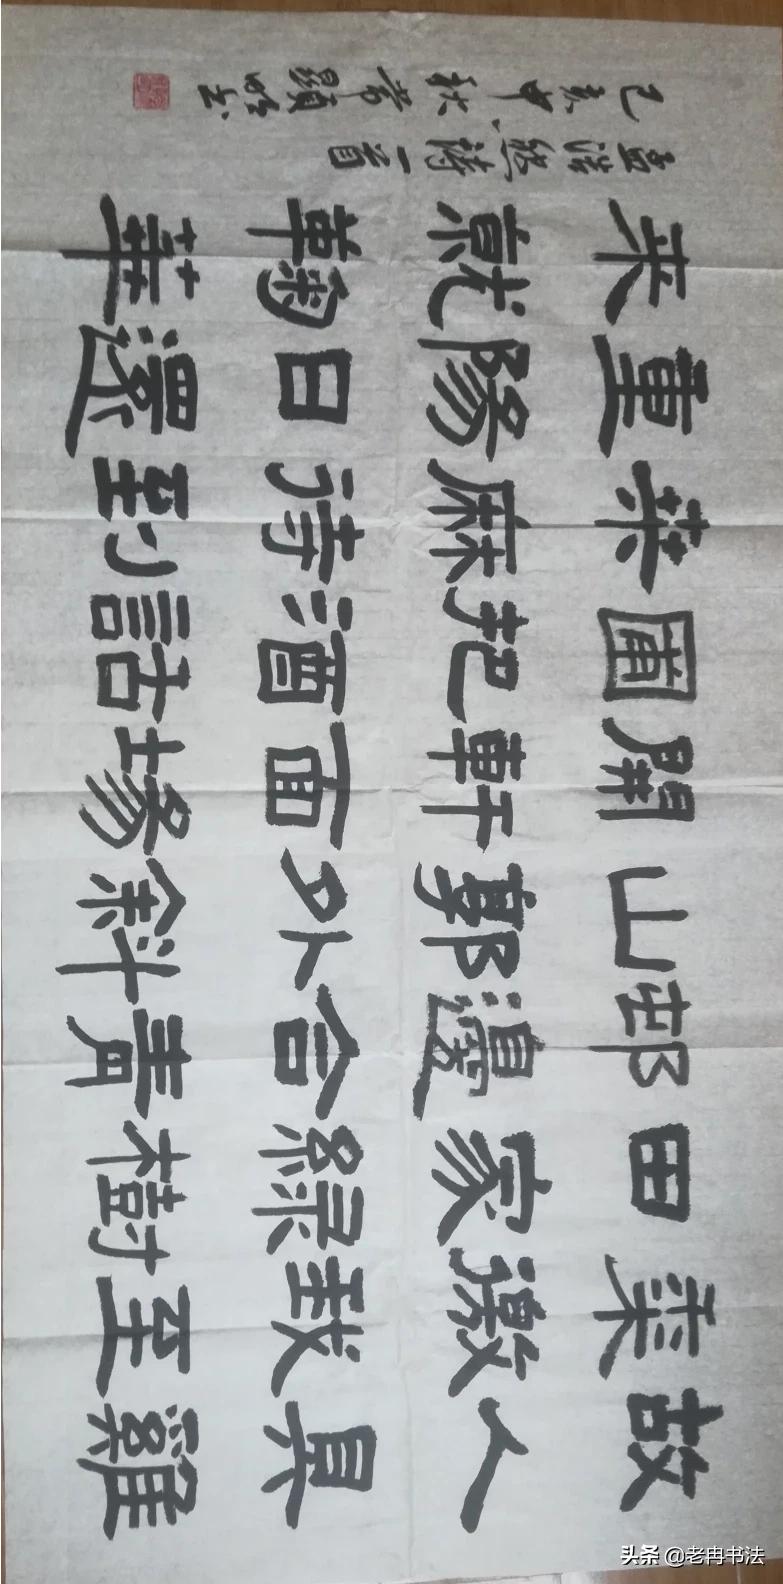 故人具雞
黍邀我至
田家綠樹
邨邊合青
山郭外斜
開軒面場
圃把酒話
桑麻待到
重陽日還
来就菊華
孟浩然詩一首
己亥中秋
头条 @老冉书法